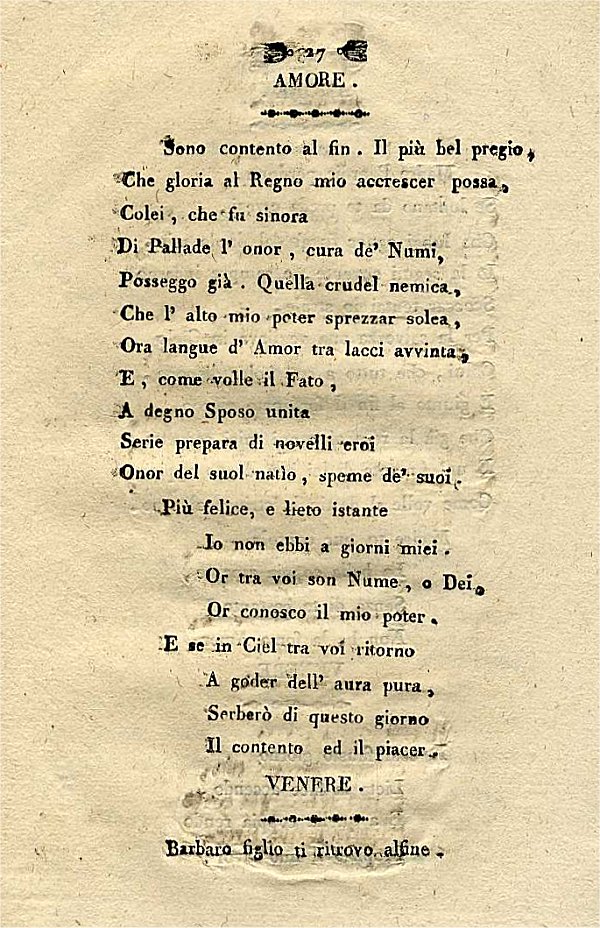 27
AMORE.
Sono contento al fin. Il più bel pregio,
Che gloria al Regno mio accrescer possa,
Colei, che fu sinora
Di Pallade l' onor, cura de' Numi,
Posseggo già. Quella crudel nemica,
Che l' alto mio poter sprezzar solea,
Ora langue d' Amor tra lacci avvinta,
E, come volle il Fato,
A degno Sposo unita
Serie prepara di novelli eroi
Onor del suol natìo, speme de' suoi.
Più felice, e lieto istante
Io non ebbi a giorni miei.
Or tra voi son Nume, o Dei,
Or conosco il mio poter.
E se in Ciel tra voi ritorno
A goder dell' aura pura,
Serberò di questo giorno
Il contento ed il piacer.
VENERE.
Barbaro figlio ti ritrovo alfine.